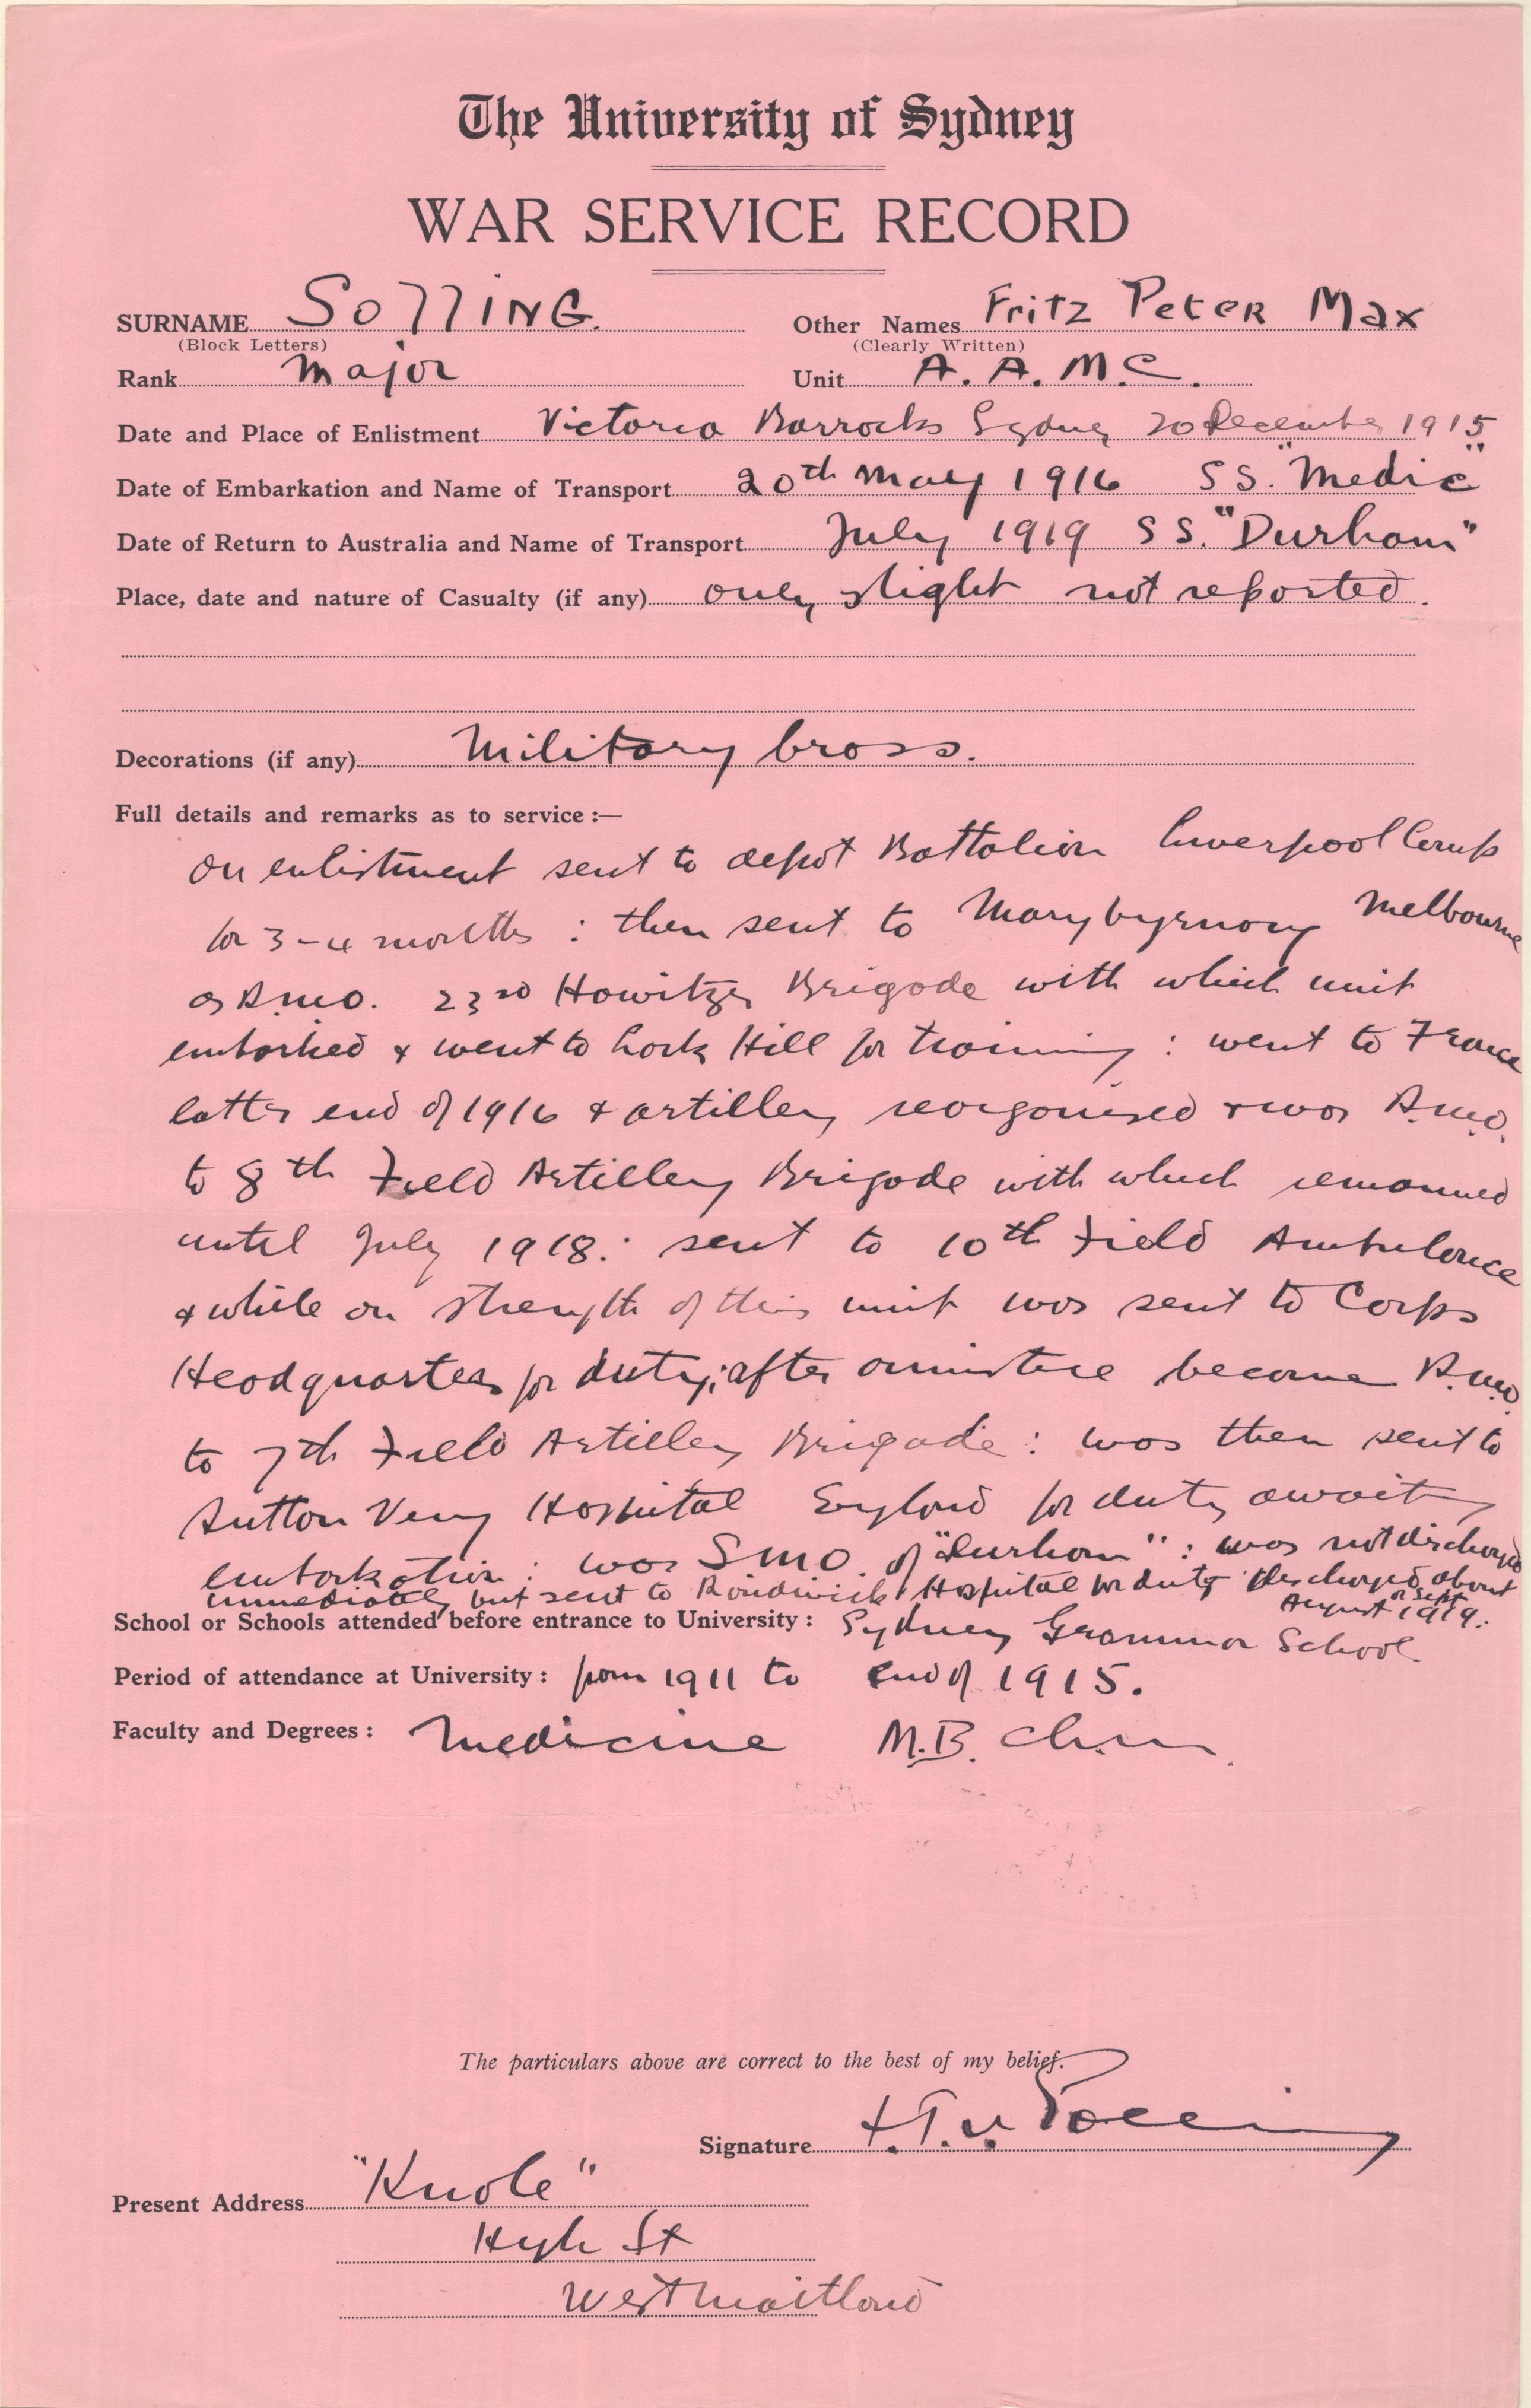 The University of Sydney
WAR SERVICE RECORD
SURNAME SOLLING. Other Names Fritz Peter Max
(Block Letters) (Clearly Written)
Rank Major Unit A.A.M.C.
Date and Place of Enlistment Victoria Barracks Sydney 20 December 1915
Date of Embarkation and Name of Transport 20th May 1916 SS. "Medic"
Date of Return to Australia and Name of Transport July 1919 SS. "Durham"
Place, date and nature of Casualty (if any) only slight not reported.
Decorations (if any) Military Cross.
Full details and remarks as to service :—
On enlistment sent to depot Battalion Liverpool Camp
for 3-4 months : then sent to Marybyrnong Melbourne
as R.M.O. 23rd Howitzer Brigade with which unit
embarked & went to Lark Hill for training : went to France
latter end of 1916 & artillery reorganised & was R.M.O.
to 8th Field Artillery Brigade with which remained
until July 1918 : sent to 10th Field Ambulance
& while on strength of this unit was sent to Corps
Headquarters for duty; after armistice became R.M.O.
to 7th Field Artillery Brigade : was then sent to
Sutton Veny Hospital England for duty await
embarkation : was SMO. of "Durham" : was not discharged
immediately but sent to Randwick Hospital for duty discharged about
August or Sept 1919.
School or Schools attended before entrance to University : Sydney Grammar School.
Period of attendance at University : from 1911 to end of 1915.
Faculty and Degrees : Medicine M.B. Ch.M.
The particulars above are correct to the best of my belief.
Signature
Present Address "Knole"
High St
West Maitland